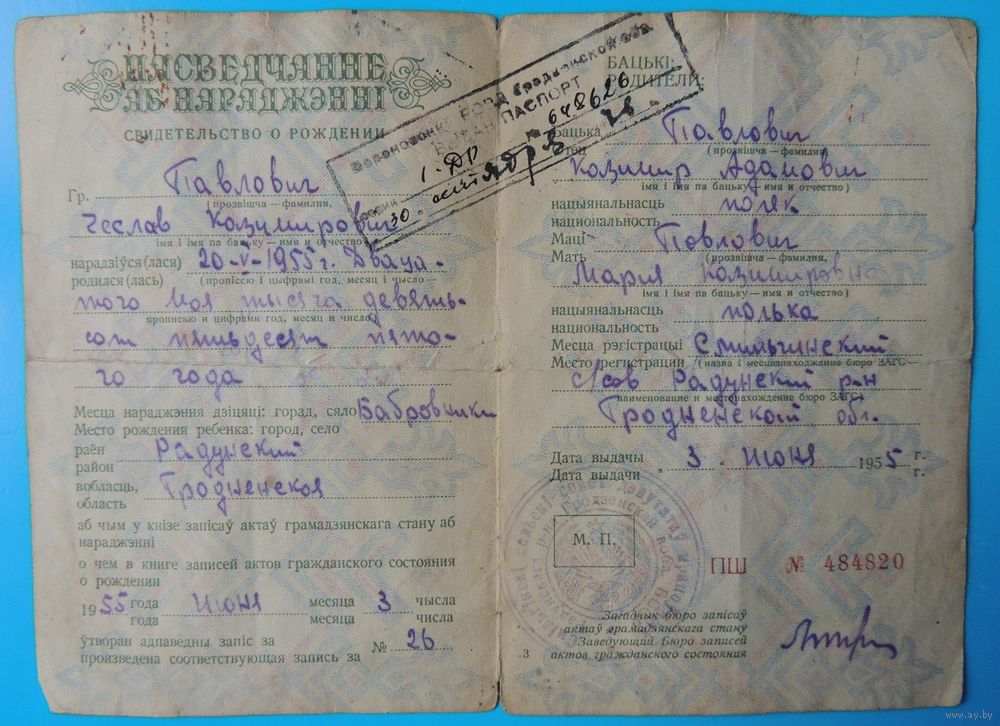 ПАСВЕДЧАННЕ
АБ НАРАДЖЭННІ
СВИДЕТЕЛЬСТВО О РОЖДЕНИИ
Гр. Павлович
(прозвішча — фамилия,
Чеслав Казимирович
імя і імя па бацьку — имя и отчество)
нарадзіўся(лася) 20-V-1955 г. Двадца-
родился(лась) (пропіссю і цыфрамі год, месяц і чысло —
того Мая тысяча девять-
прописью и цифрами год, месяц и число)
сот пятьдесят пято-
го года
Месца нараджэння дзіцяці: горад, сяло Бабровники
Место рождения ребенка: город, село
раён Радунский
район
вобласць, Гродненская
область
аб чым у кнізе запісаў актаў грамадзянскага стану аб
нараджэнні
о чем в книге записей актов гражданского состояния
о рождении
1955 года Июня месяца 3 чысла
года месяца числа
утворан адпаведны запіс за № 26
произведена соответствующая запись за
РОВД Гродненской обл.
ПАСПОРТ
I-ДР № 648626
30 октября 78 г.
БАЦЬКІ:
РОДИТЕЛИ:
Бацька Павлович
Отец (прозвішча — фамилия,
Казимир Адамович
імя і імя па бацьку — имя и отчество)
нацыянальнасць поляк
национальность
Маці Повлович
Мать (прозвішча — фамилия,
Мария Казимировна
імя і імя па бацьку — имя и отчество)
нацыянальнасць полька
национальность
Месца рэгістрацыі Смильгинский
Место регистрации (назва і месцазнаходжанне бюро ЗАГС —
с/сов Радунский р-н
наименование и местонахождение бюро ЗАГС)
Гродненской обл.
Дата выдачы „ 3 „ Июня 1955 г.
Дата выдачи г.
М. П.
ПШ № 484820
Загадчык бюро запісаў
актаў грамадзянскага стану
Заведующий Бюро записей
актов гражданского состояния
3
www.ay.by